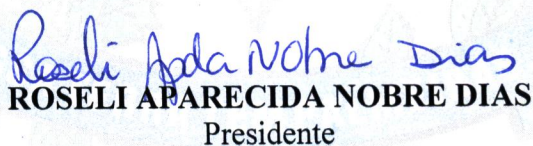 Roseli Apda Nobre Dias
ROSELI APARECIDA NOBRE DIAS
Presidente